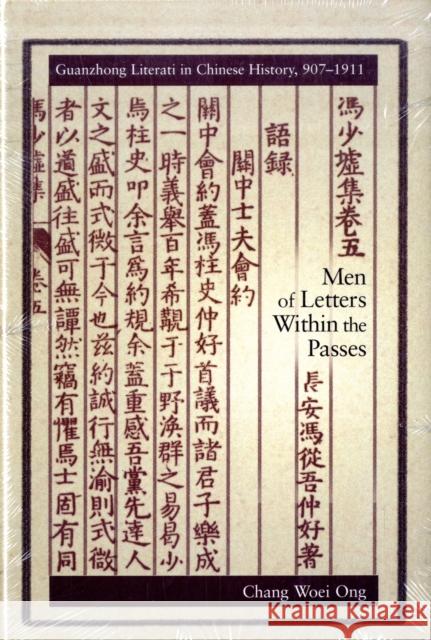 Guanzhong Literati in Chinese History, 907–1911
馮少墟集卷五
長安馮從吾仲好著
語錄
關中士夫會約
關中會約蓋馮柱史仲好首議而諸君子樂成
之一時義舉百年希覯于于野渙群之易曷少
焉柱史叩余言爲約規余蓋重感吾黨先達人
文之盛而式微于今也茲約誠行無渝則式微
者以道盛往盛可無譚然竊有懼焉士固有同
馮少墟集
卷五
Men
of Letters
Within the
Passes
Chang Woei Ong